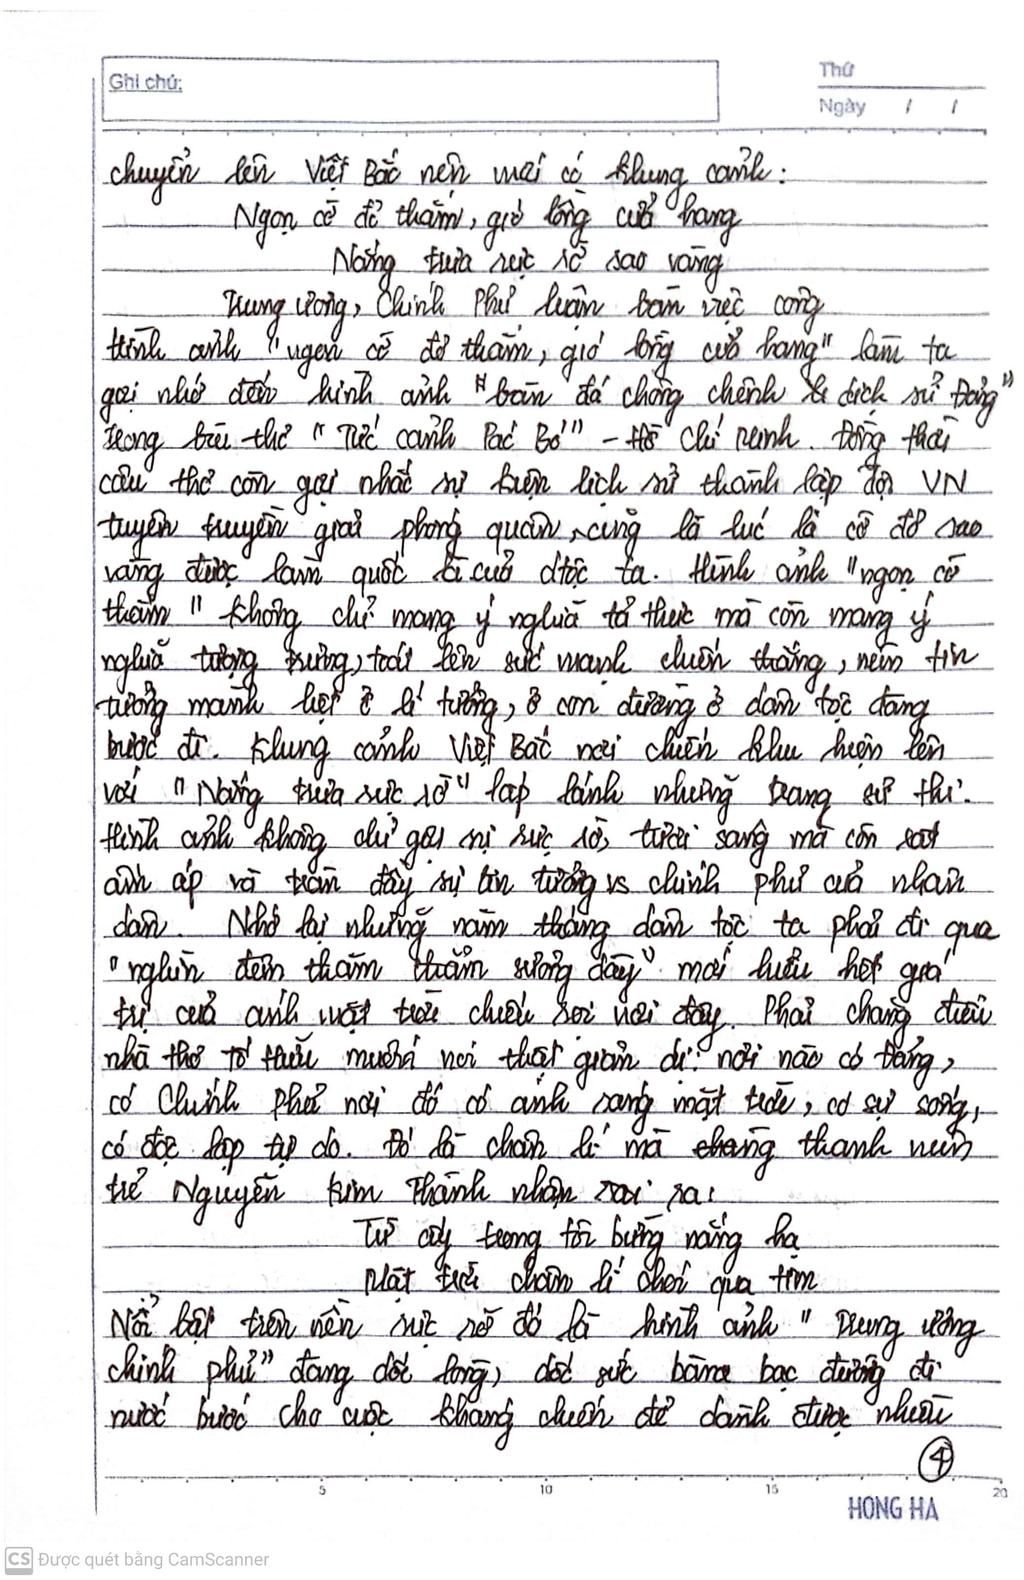 Ghi chú:
Thứ
Ngày / /
chuyển lên Việt Bắc nên mới có khung cảnh:
Ngọn cờ đỏ thắm, gió lồng cửa hang
Nắng trưa rực rỡ sao vàng
Trung ương, Chính Phủ luận bàn việc công
Hình ảnh "ngọn cờ đỏ thắm, gió lồng cửa hang" làm ta
gợi nhớ đến hình ảnh "bàn đá chông chênh dịch sử Đảng"
trong bài thơ "Tức cảnh Pác Bó" - Hồ Chí Minh. Đồng thời
câu thơ còn gợi nhắc sự kiện lịch sử thành lập đội VN
tuyên truyền giải phóng quân, cũng là lúc lá cờ đỏ sao
vàng được làm quốc kì của dtộc ta. Hình ảnh "ngọn cờ
thắm" không chỉ mang ý nghĩa tả thực mà còn mang ý
nghĩa tượng trưng, toát lên sức mạnh chiến thắng, niềm tin
tưởng mãnh liệt ở lí tưởng, ở con đường ở dân tộc đang
bước đi. Khung cảnh Việt Bắc nơi chiến khu hiện lên
với "Nắng trưa rực rỡ" lấp lánh những trang sử thi.
Hình ảnh không chỉ gợi sự rực rỡ, tươi sáng mà còn
ấm áp và tràn đầy sự tin tưởng vs chính phủ của nhân
dân. Nhớ lại những năm tháng dân tộc ta phải đi qua
"nghìn đêm thăm thẳm sương dày" mới hiểu hết giá
trị của ánh mặt trời chiếu rọi nơi đây. Phải chăng điều
nhà thơ Tố Hữu muốn nói thật giản dị: nơi nào có Đảng,
có Chính Phủ nơi đó có ánh sáng mặt trời, có sự sống,
có độc lập tự do. Đó là chân lí mà chàng thanh niên
trẻ Nguyễn Kim Thành nhận ra:
Từ ấy trong tôi bừng nắng hạ
Mặt trời chân lí chói qua tim
Nổi bật trên nền rực rỡ đó là hình ảnh "Trung ương
chính phủ" đang dốc lòng, dốc sức bàn bạc đường đi
nước bước cho cuộc kháng chiến để dành được nhiều
4
5 10 15 20
HONG HA
CS Được quét bằng CamScanner